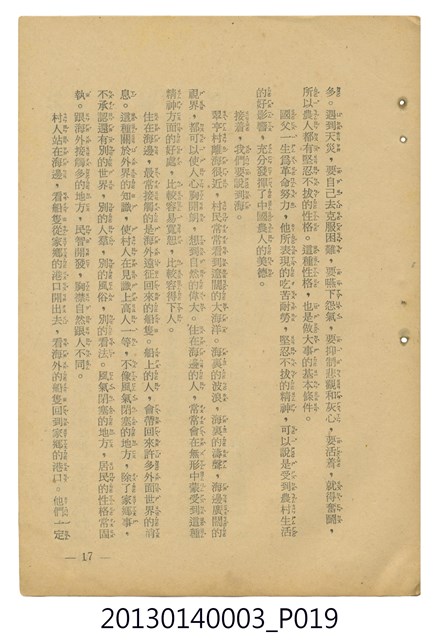 多。遇到天災，要自己去克服困難，要嚥下怨氣，要抑制悲觀和灰心，要活着，就得奮鬪，
所以農人都有堅忍不拔的性格。這種性格，也是做大事的基本條件。
國父一生爲革命努力，他所表現的吃苦耐勞，堅忍不拔的精神，可以說是受到農村生活
的好影響，充分發揮了中國農人的美德。
接着，我們要說到海。
翠亨村離海很近，村民常常看到遼闊的大海洋。海裏的波浪，海裏的濤聲，海邊廣闊的
視界，都可以使人心胸開朗，想到自然的偉大。住在海邊的人，常常會在無形中蒙受到這種
精神方面的好處，比較容易寬恕，比較容得下人。
住在海邊，最常接觸的是海外遠征回來的船隻。船上的人，會帶回來許多外面世界的消
息。這種關於外界的知識，使村人在見識上高人一等，不像風氣閉塞的地方，除了家鄉事，
不承認還有別的世界，別的人羣，別的風俗，別的看法。風氣閉塞的地方，居民的性格常固
執。跟海外接觸多的地方，民智開發，胸襟自然跟人不同。
村人站在海邊，看船隻從家鄉的港口開出去，看海外的船隻回到家鄉的港口。他們一定
— 17 —
20130140003_P019